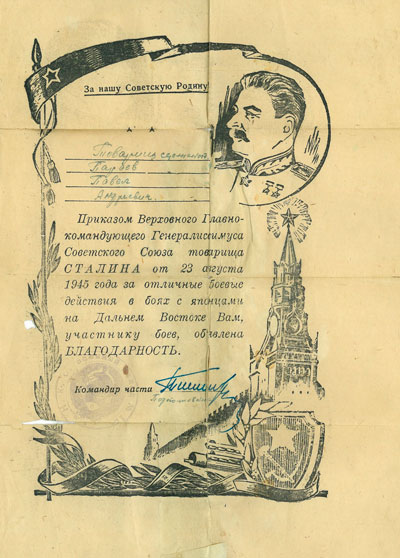 За нашу Советскую Родину
Товарищ сержант
Павел
Андреевич
Приказом Верховного Главно-
командующего Генералиссимуса
Советского Союза товарища
СТАЛИНА от 23 августа
1945 года за отличные боевые
действия в боях с японцами
на Дальнем Востоке Вам,
участнику боев, объявлена
БЛАГОДАРНОСТЬ.
Командир части